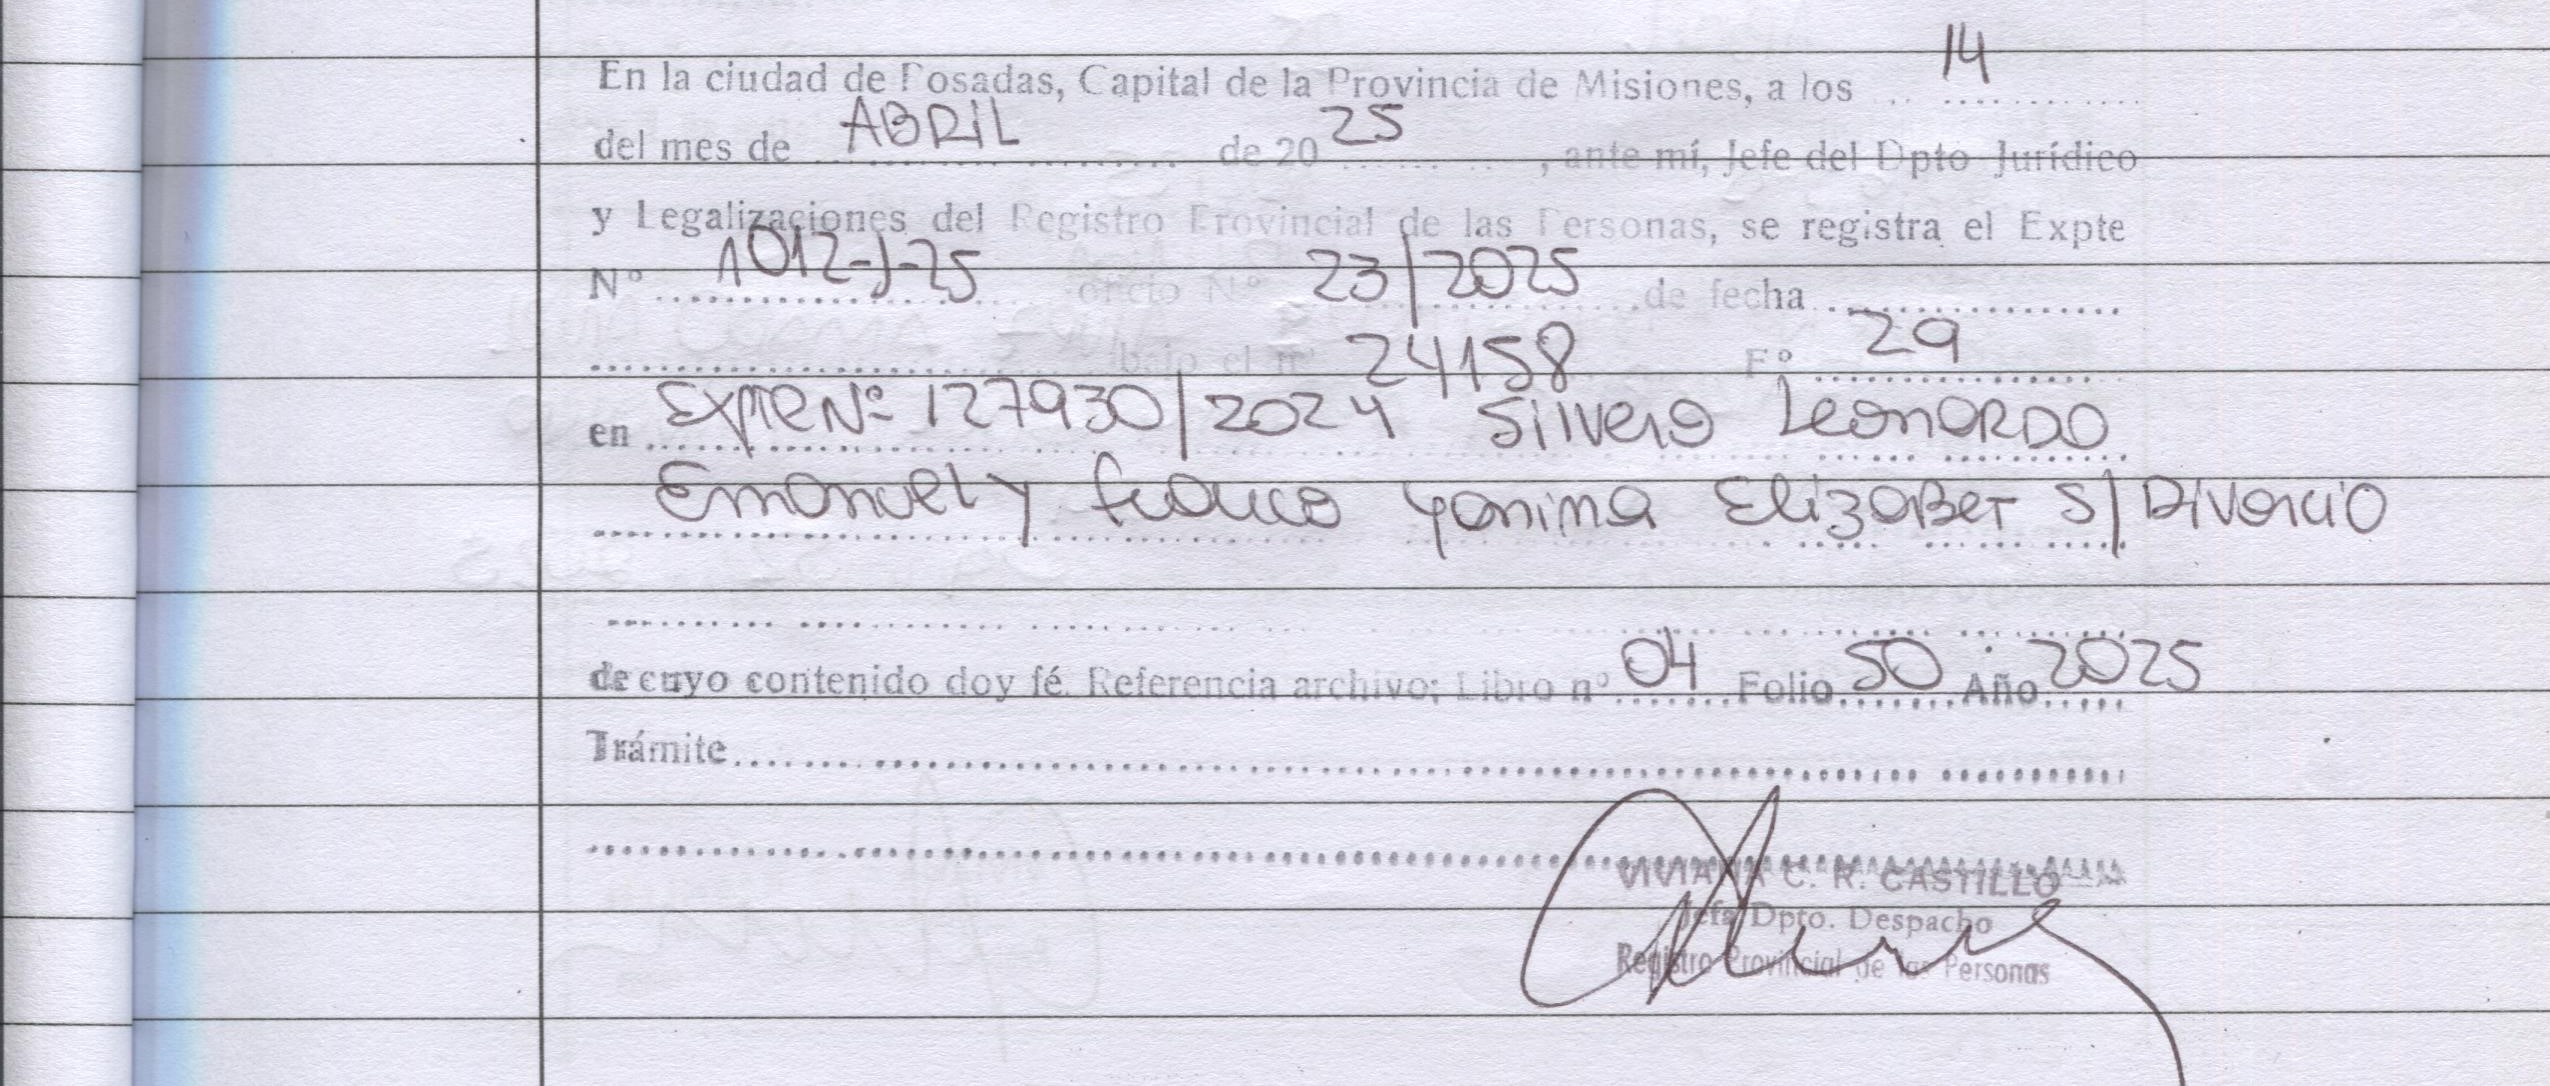 En la ciudad de Posadas, Capital de la Provincia de Misiones, a los 14
del mes de ABRIL de 20 25, ante mí, Jefe del Dpto Jurídico
y Legalizaciones del Registro Provincial de las Personas, se registra el Expte
Nº 1012-J-25 oficio Nº 23/2025 de fecha
bajo el nº 24158 Fº 29
en Expte Nº 127930/2024 Silvero Leonardo
Emanuel y Franco Yanina Elizabet S/ Divorcio
de cuyo contenido doy fé. Referencia archivo: Libro nº 04 Folio 50 Año 2025
Trámite
VIVIANA C. R. CASTILLO
Jefa Dpto. Despacho
Registro Provincial de las Personas